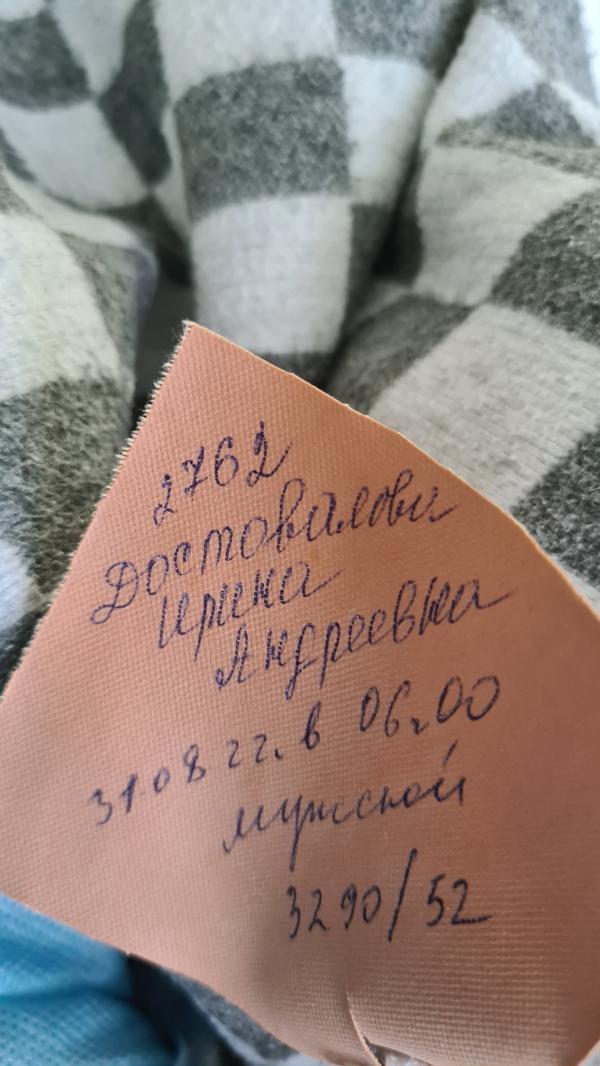 2762
Достовалова
Ирина
Андреевна
31.08.22г. в 06.00
мужской
3290/52